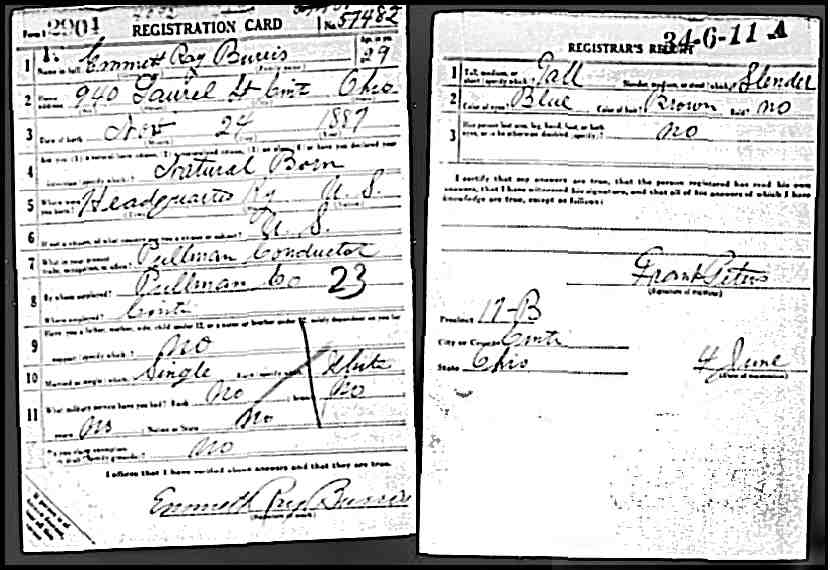 Form 1 2901 REGISTRATION CARD No. 57482
1 Name in full Emmett Ray Burris Age, in yrs. 29
(Family name)
2 Home address 940 Laurel St Cint Ohio
3 Date of birth Nov 24 1887
4 Are you (1) a natural-born citizen, (2) a naturalized citizen, (3) an alien, (4) or have you declared your
intention (specify which)? Natural Born
5 Where were you born? Headquarters Ky U. S.
6 If not a citizen, of what country are you a citizen or subject? U. S.
7 What is your present trade, occupation, or office? Pullman Conductor
8 By whom employed? Pullman Co 23
Where employed? Cinti
9 Have you a father, mother, wife, child under 12, or a sister or brother under 12, solely dependent on you for
support (specify which)? No
10 Married or single (which)? Single Race (specify which)? White
11 What military service have you had? Rank No ; branch No
years No ; Nation or State No
Do you claim exemption from draft (specify grounds)? No
I affirm that I have verified above answers and that they are true.
Emmett Ray Burris
34-6-11 A
REGISTRAR'S REPORT
1 Tall, medium, or short (specify which)? Tall Slender, medium, or stout (which)? Slender
2 Color of eyes? Blue Color of hair? Brown Bald? No
3 Has person lost arm, leg, hand, foot, or both
eyes, or is he otherwise disabled (specify)? No
I certify that my answers are true, that the person registered has read his own
answers, that I have witnessed his signature, and that all of his answers of which I have
knowledge are true, except as follows:
Frank Peters
(Signature of registrar)
Precinct 17-B
City or County Cinti
State Ohio 4 June
(Date of registration)